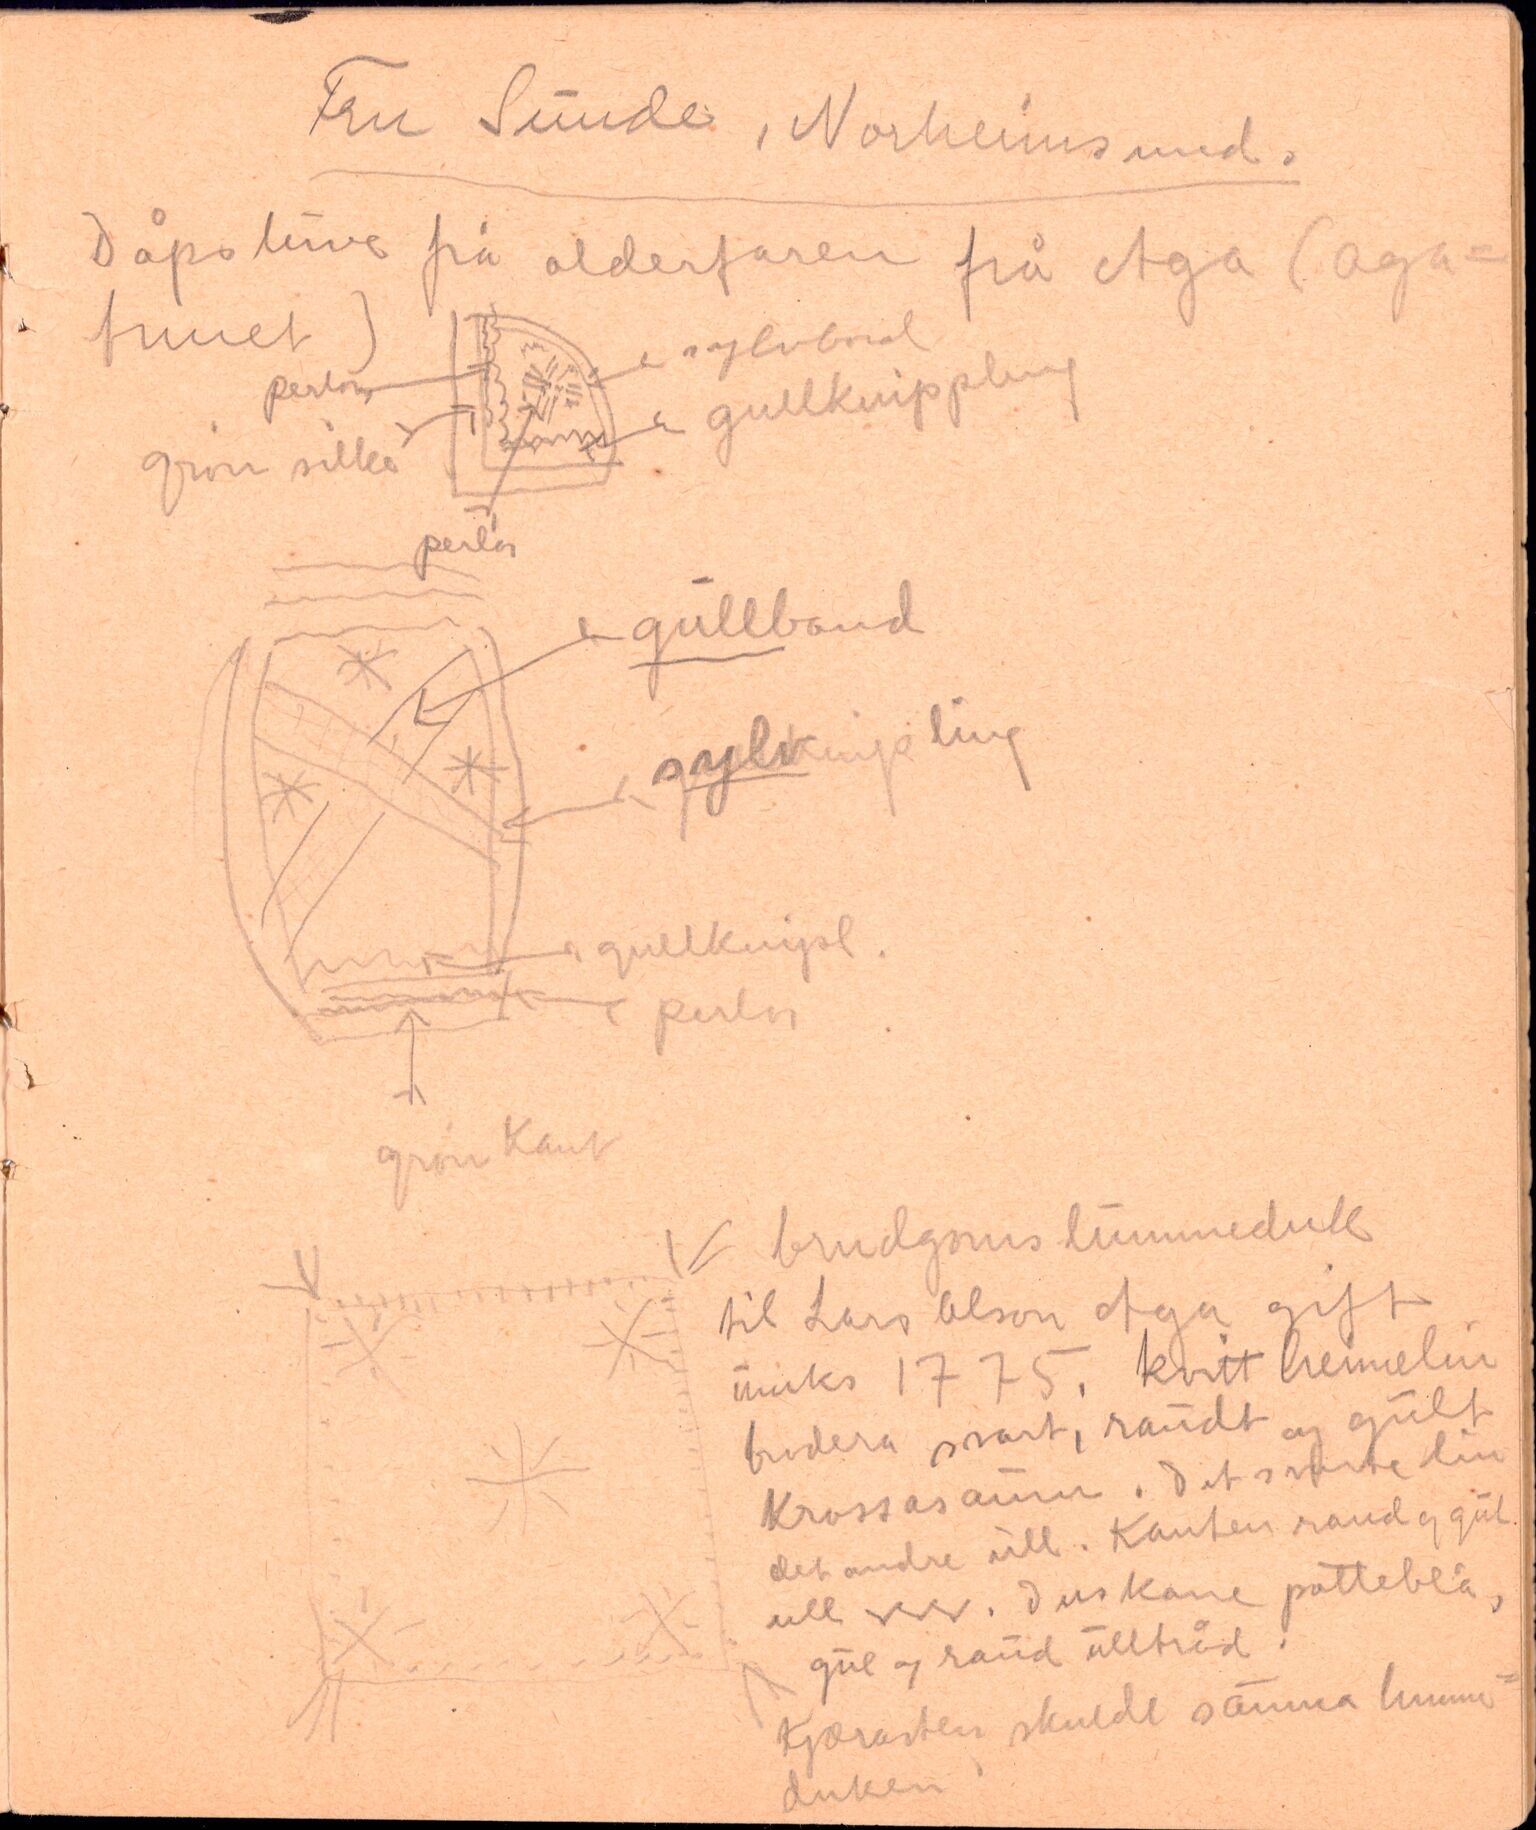 Fru Sunde, Norheimsund.
Dåpsluve frå olderfaren frå Aga (Aga=
tunet)
sylvband
perlor
gullknippling
grøn silke
perlor
gullband
sylvknipling
gullknipl.
perlor
grøn kant
brudgoms lummeduk
til Lars Olson Aga gift
umks 1775. kvitt heimelin
brodera svart, raudt og gult
Krossasaum. Det svarte lin
det andre ull. Kanten raud og gul
ull . Duskane potteblå,
gul og raud ulltråd.
Kjærasten skulde sauma lumme=
duken